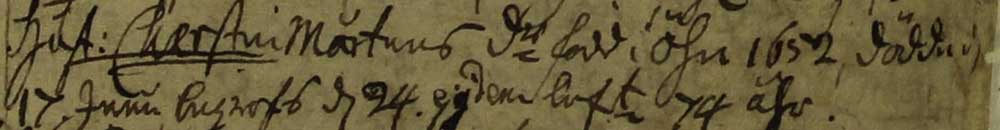 Hust: Cherstin Mårtens Dr född i Öhn 1652, dödde d
17. Junii begrofs d 24. ejusdem 74 åhr.